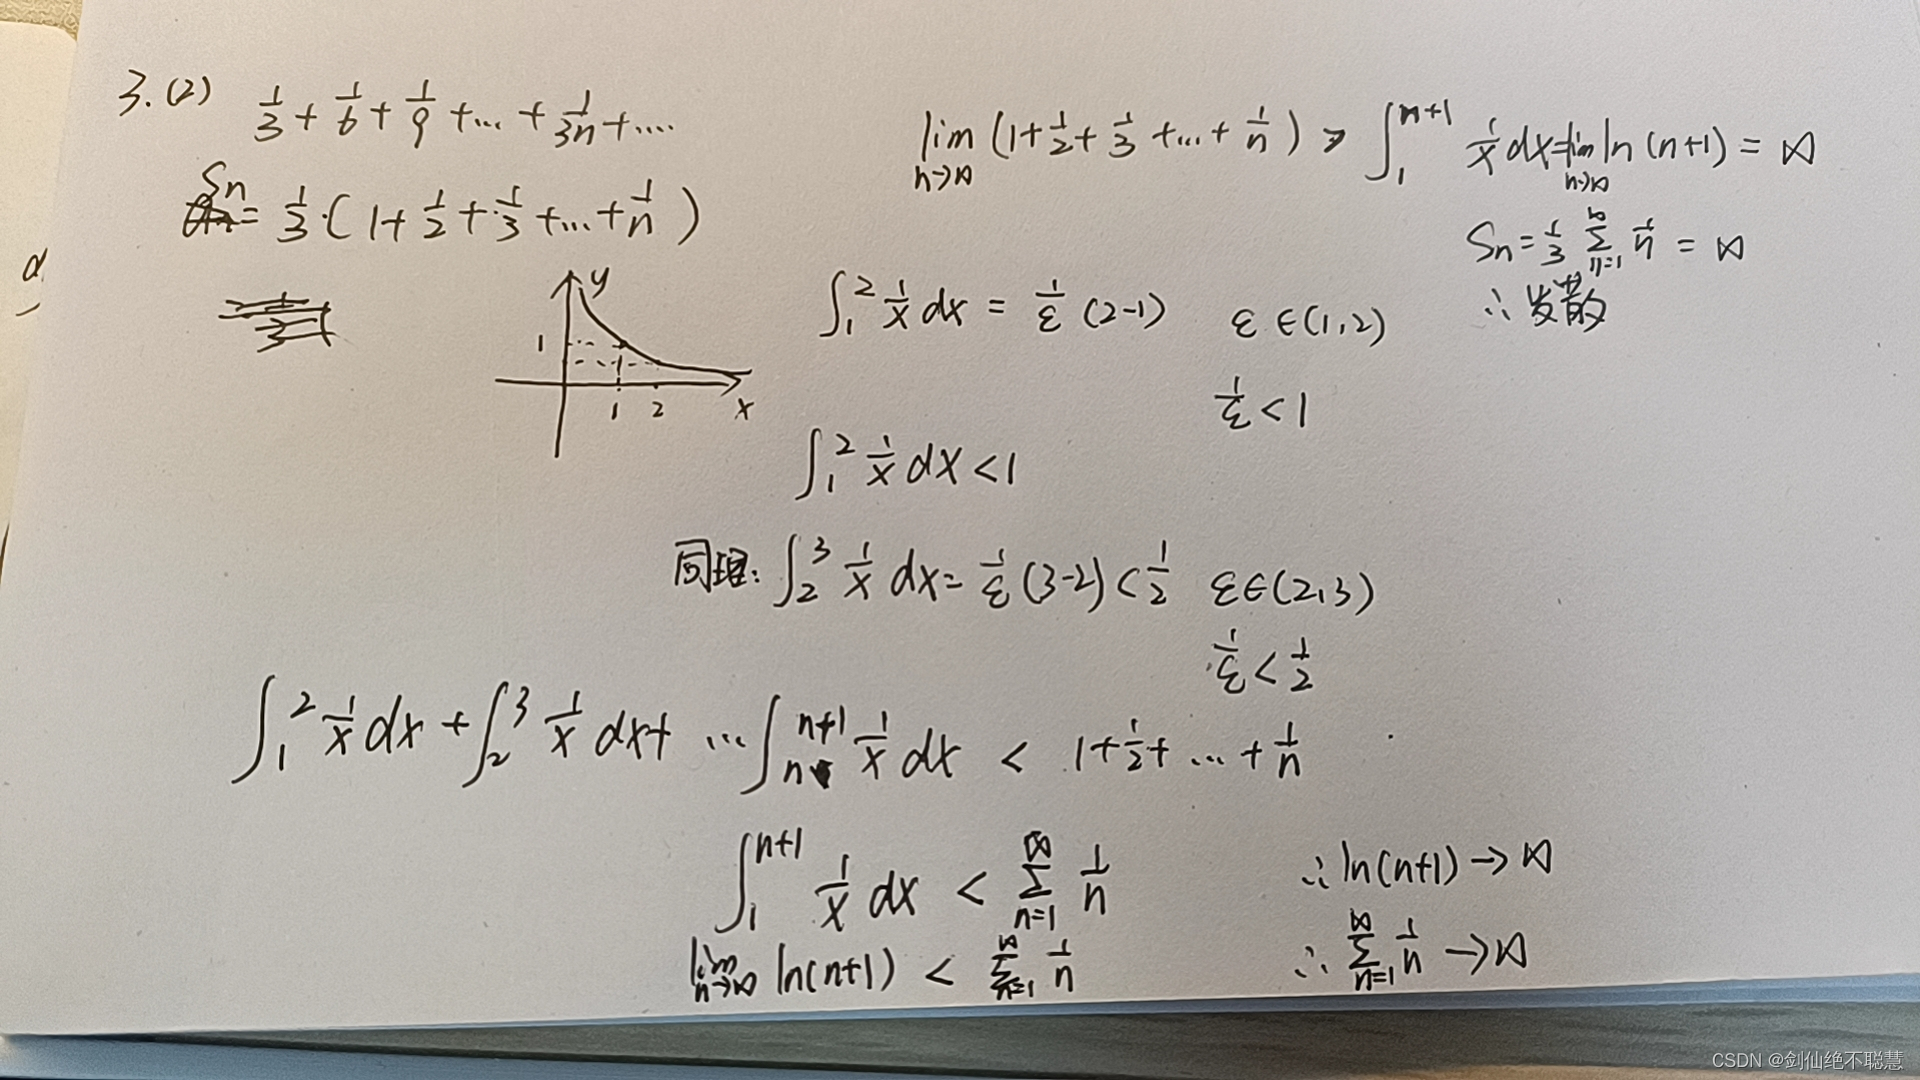 3.(2) 1/3 + 1/6 + 1/9 +... + 1/3n + ....
Sn = 1/3·(1+ 1/2 + 1/3 +... + 1/n)
lim n→∞ (1+ 1/2 + 1/3 +...+ 1/n) > ∫₁ⁿ⁺¹ 1/x dx = lim n→∞ ln(n+1) = ∞
Sn = 1/3 ∑ n=1 ∞ 1/n = ∞
∴ 发散
y
1
1 2 x
∫₁² 1/x dx = 1/ε (2-1) ε∈(1,2)
1/ε < 1
∫₁² 1/x dx < 1
同理: ∫₂³ 1/x dx = 1/ε (3-2) < 1/2 ε∈(2,3)
1/ε < 1/2
∫₁² 1/x dx + ∫₂³ 1/x dx + ... ∫ₙⁿ⁺¹ 1/x dx < 1+ 1/2 + ... + 1/n
∫₁ⁿ⁺¹ 1/x dx < ∑ n=1 ∞ 1/n ∴ ln(n+1) → ∞
lim n→∞ ln(n+1) < ∑ n=1 ∞ 1/n ∴ ∑ n=1 ∞ 1/n → ∞
d
CSDN @剑仙绝不聪慧